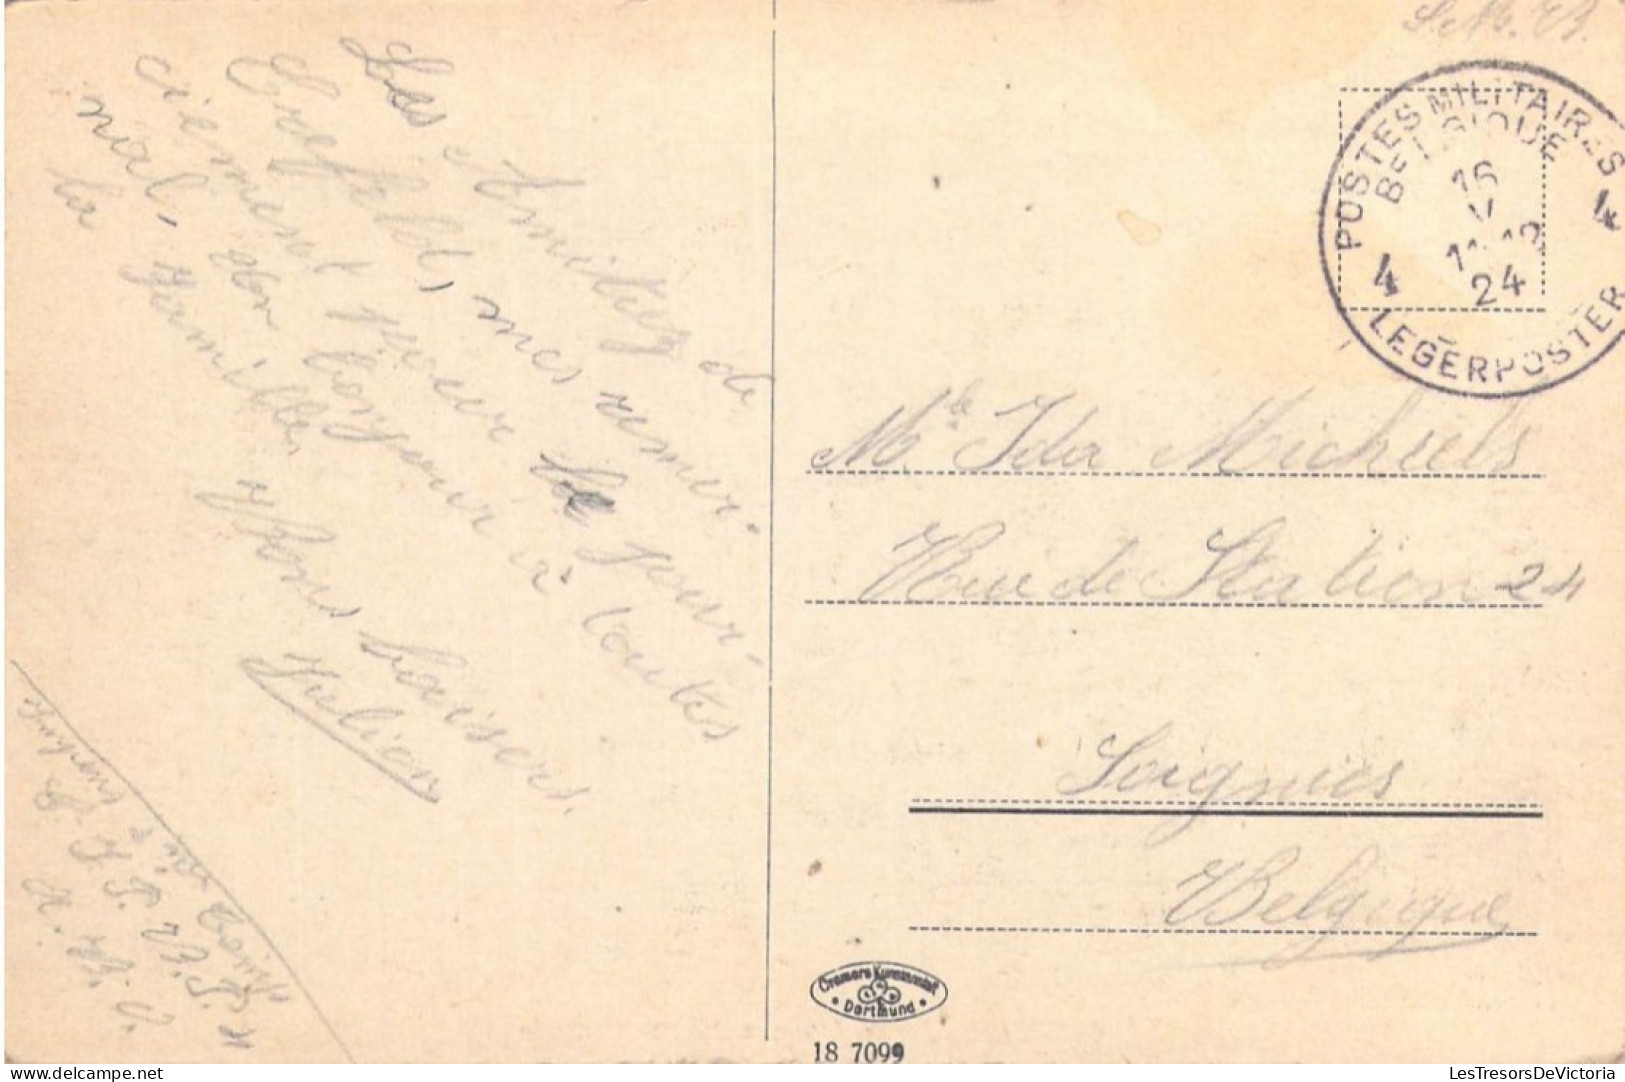 Les Amitiés de
Crefeld, mes remer-
ciement pour le jour-
nal, bon bonjour à toutes
la famille,
Bons baisers.
Julien
S. M. B.
POSTES MILITAIRES
BELGIQUE
16
V
24
4 4
LEGERPOSTER
Mlle Ida Michiels
Rue de Station 24
Soignies
Belgique
Cramers Kunstanstalt
Dortmund
18 7099
LesTresorsDeVictoria.com
LesTresorsDeVictoria